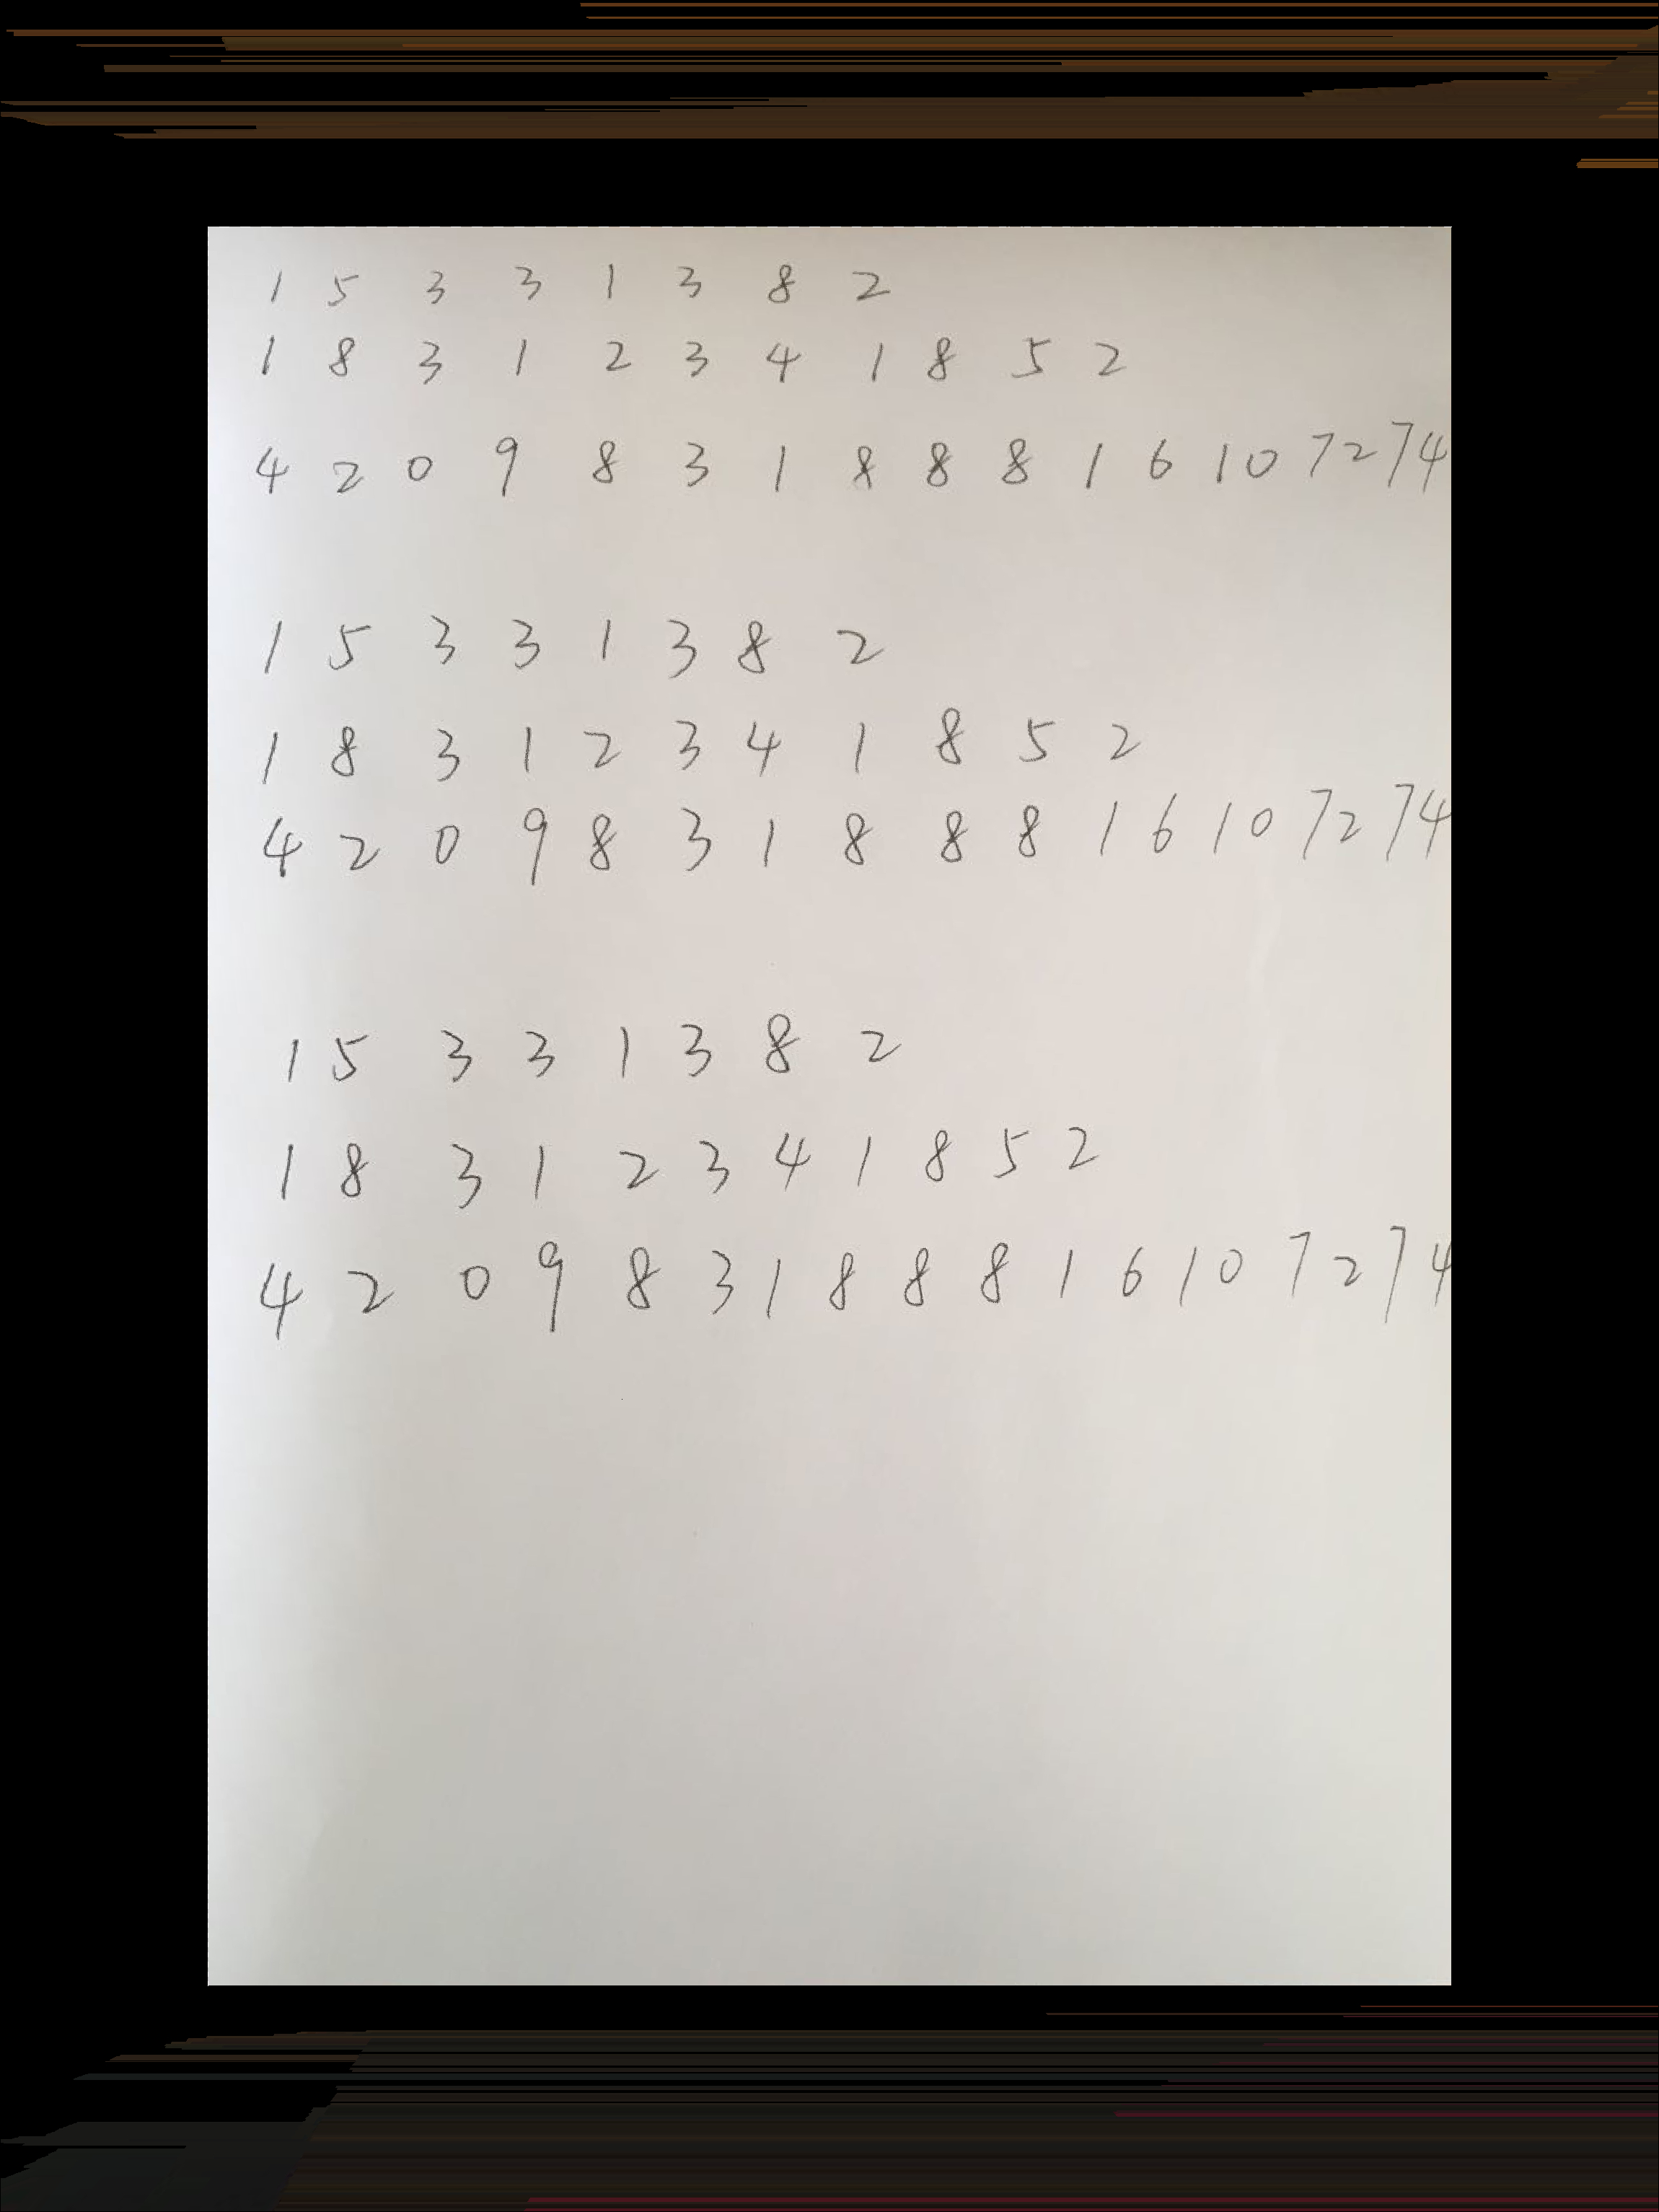 1 5 3 3 1 3 8 2
1 8 3 1 2 3 4 1 8 5 2
4 2 0 9 8 3 1 8 8 8 1 6 1 0 7 2 7 4
1 5 3 3 1 3 8 2
1 8 3 1 2 3 4 1 8 5 2
4 2 0 9 8 3 1 8 8 8 1 6 1 0 7 2 7 4
1 5 3 3 1 3 8 2
1 8 3 1 2 3 4 1 8 5 2
4 2 0 9 8 3 1 8 8 8 1 6 1 0 7 2 7 4